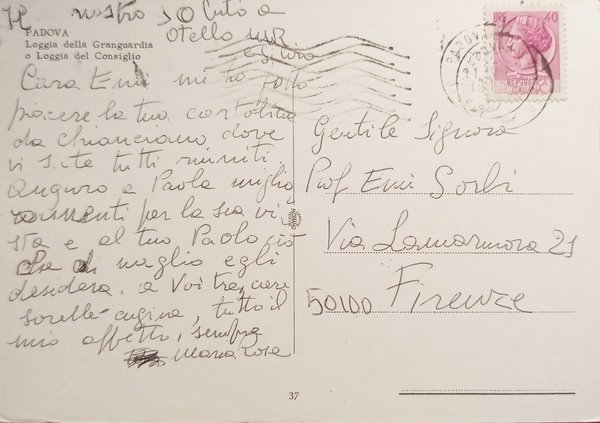 Il nostro saluto a
Otello
PADOVA
Loggia della Granguardia
o Loggia del Consiglio
Cara Emi mi ha fatto
piacere la tua cartolina
da Chianciano dove
vi siete tutti riuniti.
Auguro a Paola miglio
ramenti per la sua vi
sta e al tuo Paolo ciò
che di meglio egli
desidera. a Voi tre, care
sorelle cugine, tutto il
mio affetto, sempre
Maria Rosa
37
PADOVA
40
REPUBBLICA
ITALIANA
Gentile Signora
Prof Emi Sorbi
Via Lamarmora 21
50100 Firenze